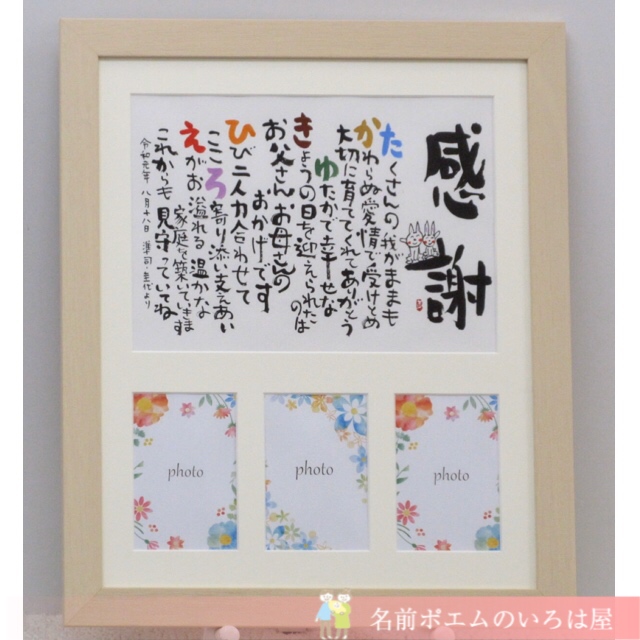 感謝
たくさんの我がままも
かわらぬ愛情で受けとめ
大切に育ててくれてありがとう
ゆたかで幸せな
きょうの日を迎えられたのは
お父さんお母さんの
おかげです
ひび二人力合わせて
こころ寄り添い支えあい
えがお溢れる温かな
家庭を築いていきます
これからも見守っていてね
令和元年 八月十八日
より
photo
photo
photo
名前ポエムのいろは屋